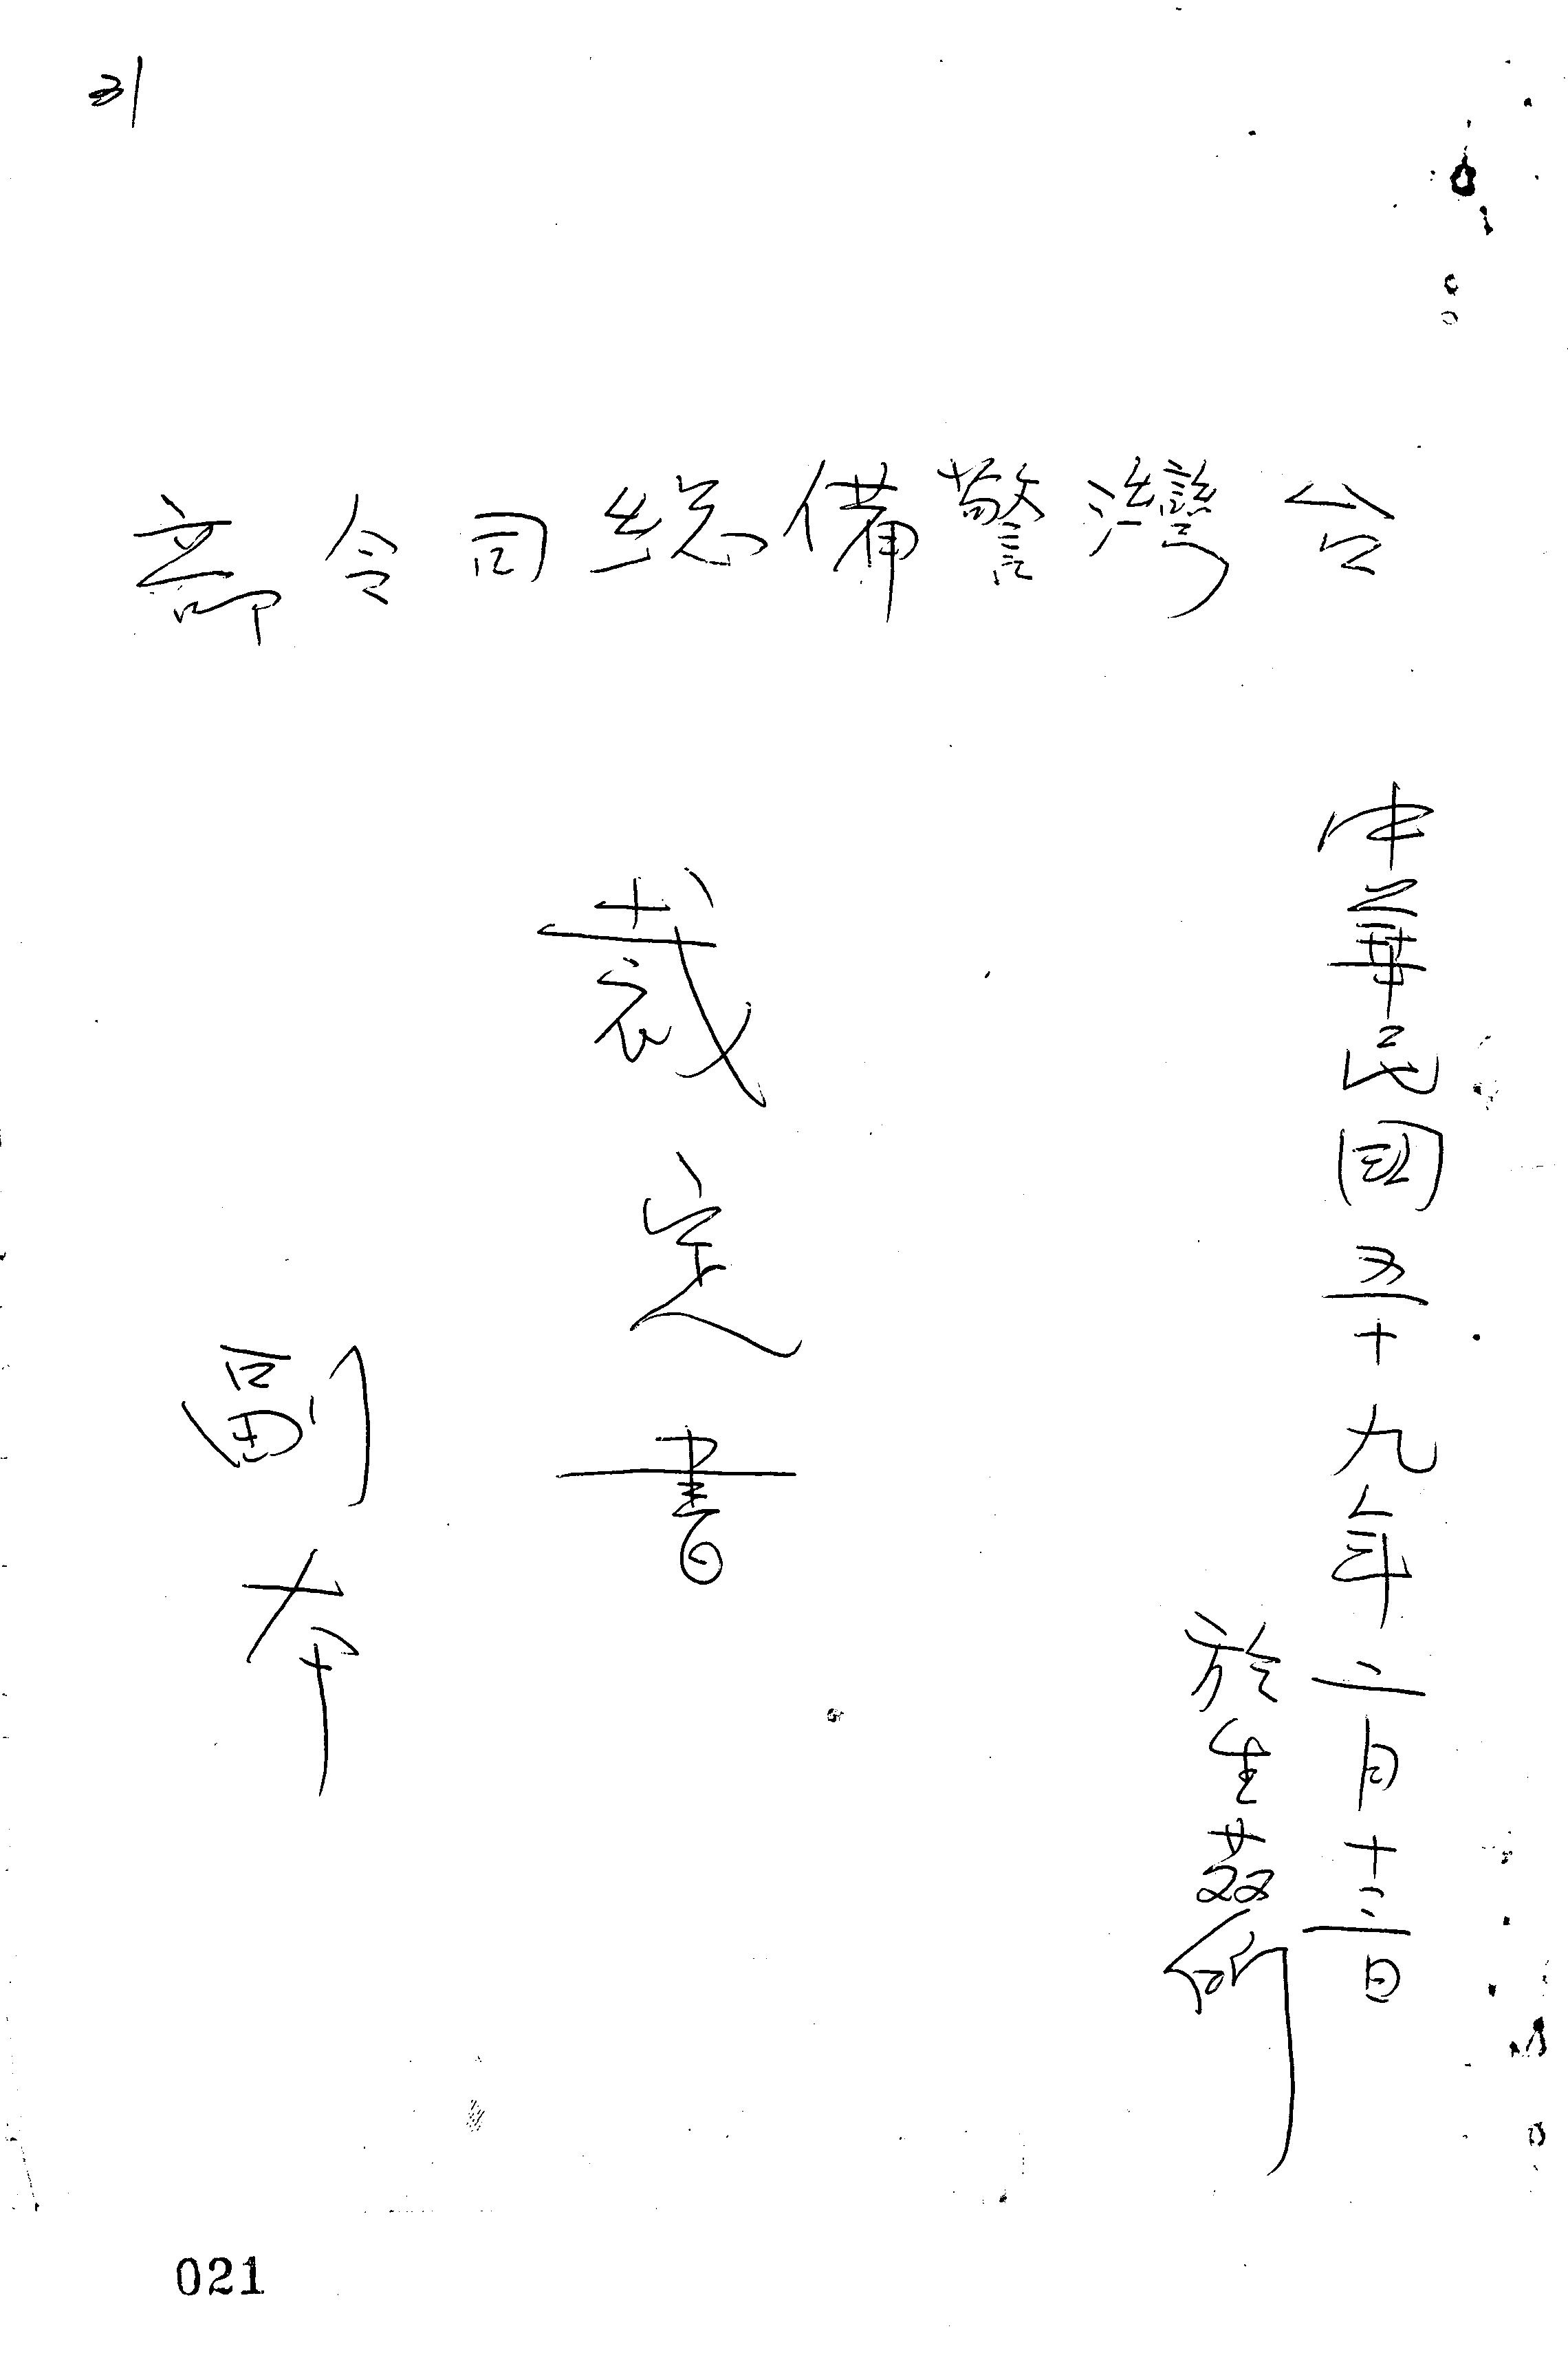 台灣警備総司令部
中華民國五十九年二月十三日
於生所
裁定書
副本
021